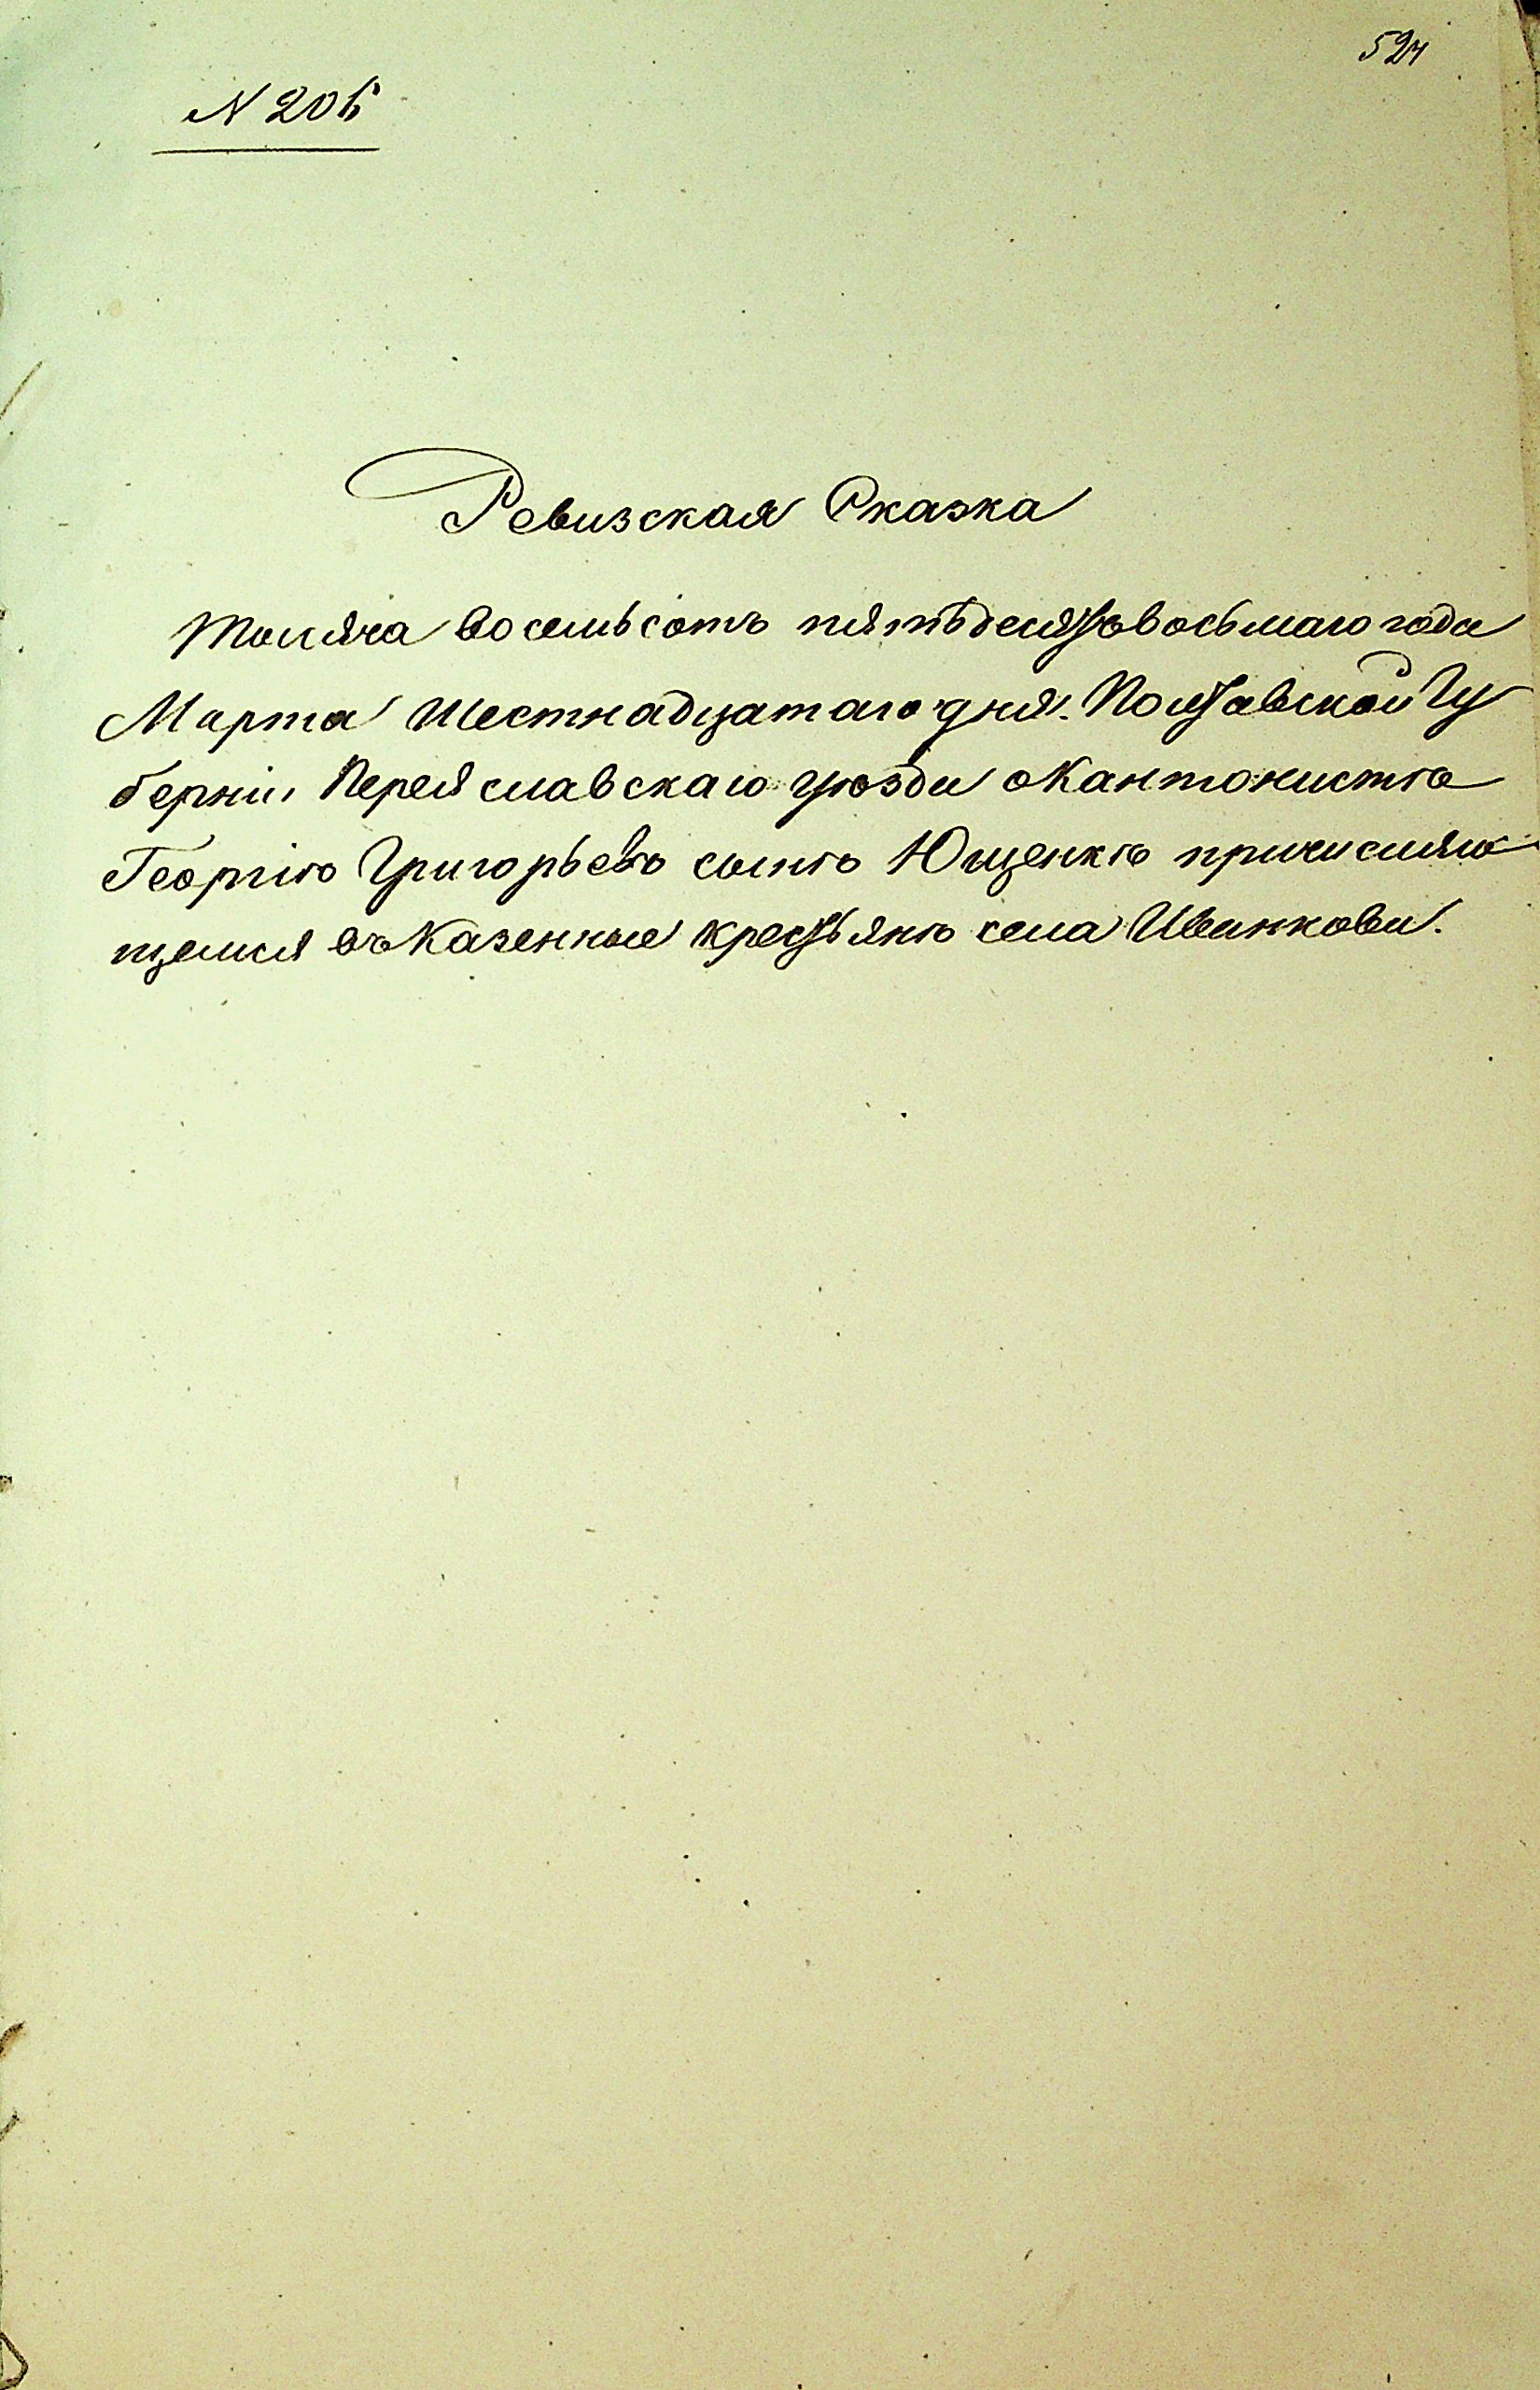 524
N 206
Ревизская Сказка
Тысяча восемьсотъ пятьдесятъ восьмаго года
Марта Шестнадцатаго дня. Полтавской Гу
берніи Переяславскаго уѣзда о Кантонистѣ
Георгіѣ Григорьевѣ сынѣ Ющенкѣ причисляю
щемся въ Казенные крестьянѣ села Иванкова.